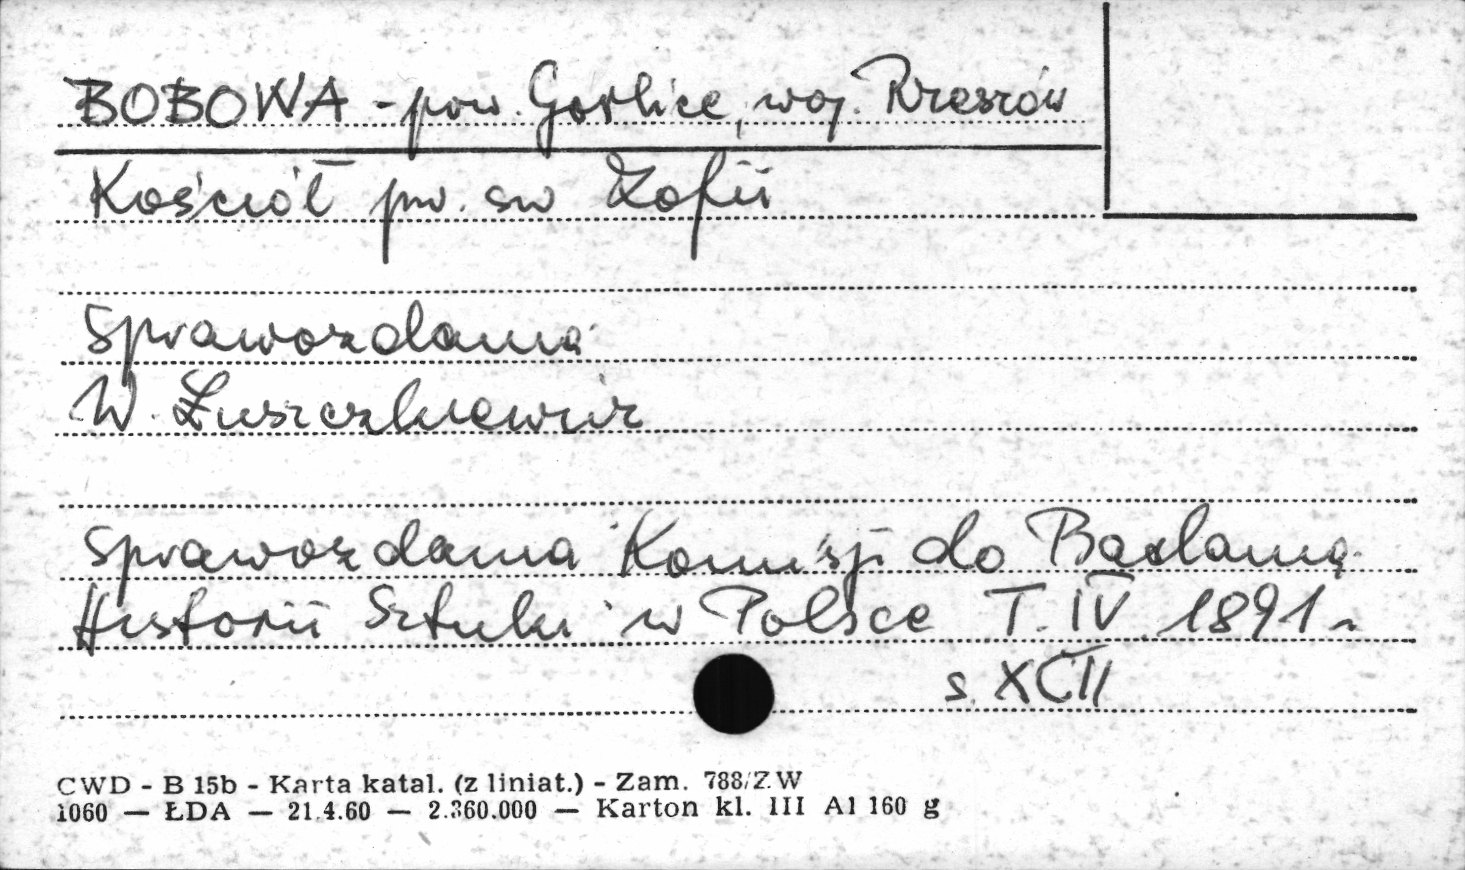 BOBOWA - pow. Gorlice, woj. Rzeszów
Kościół pw. sw Zofii
Sprawozdania
W. Łuszczkiewicz
Sprawozdania Komisji do Badania
Historii Sztuki w Polsce T. IV. 1891 r
s. XCII
CWD - B 15b - Karta katal. (z liniat.) - Zam. 788/ZW
1060 — ŁDA — 21.4.60 — 2.360.000 — Karton kl. III A1 160 g